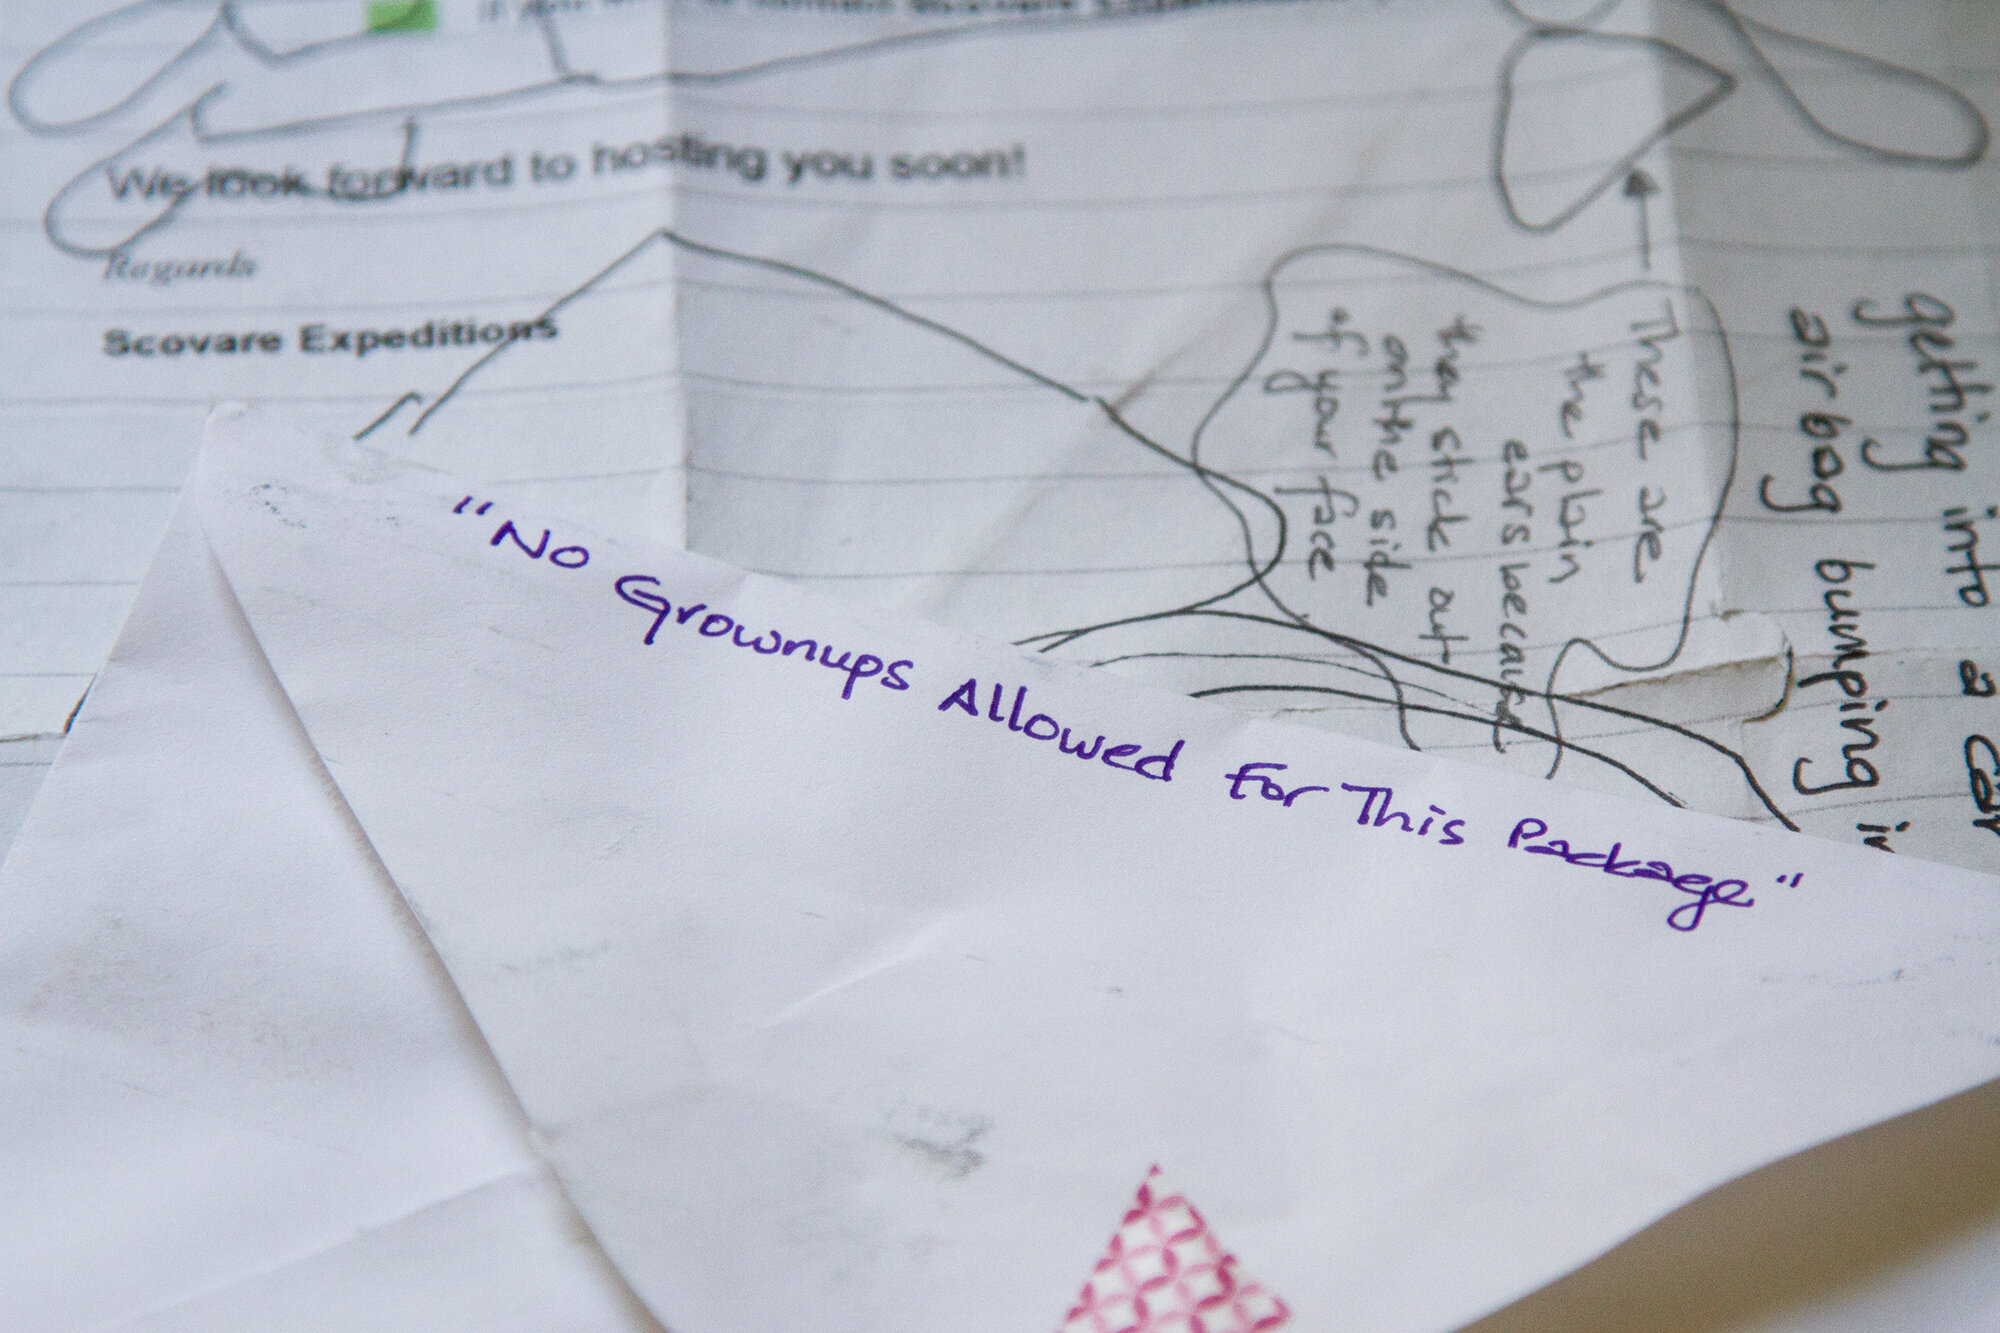 We look forward to hosting you soon!
Regards
Scovare Expeditions
"No Grownups Allowed For This Package"
These are
the plain
ears because
they stick out
on the side
of your face
getting into a car
airbag bumping in